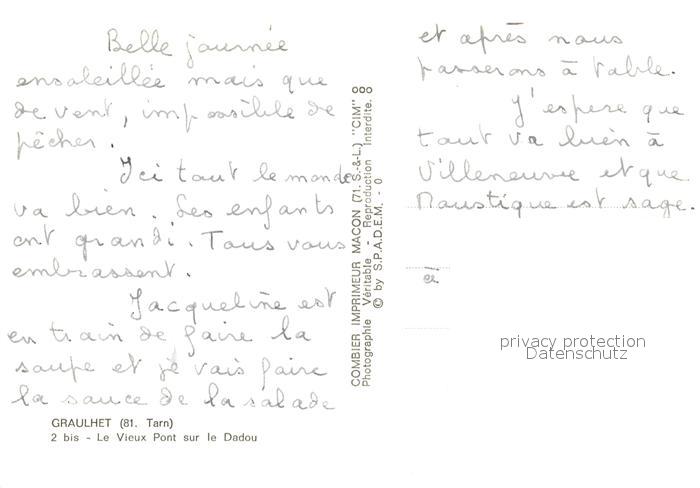 Belle journée
ensoleillée mais que
de vent, impossible de
pêcher.
Ici tout le monde
va bien. Les enfants
ont grandi. Tous vous
embrassent.
Jacqueline est
en train de faire la
soupe et je vais faire
la sauce de la salade
et après nous
passerons à table.
J'espere que
tout va bien à
Villeneuve et que
Moustique est sage.
COMBIER IMPRIMEUR MACON (71. S.-&-L.) "CIM"
Photographie Véritable - Reproduction Interdite.
© by S.P.A.D.E.M. - 0
privacy protection
Datenschutz
GRAULHET (81. Tarn)
2 bis - Le Vieux Pont sur le Dadou